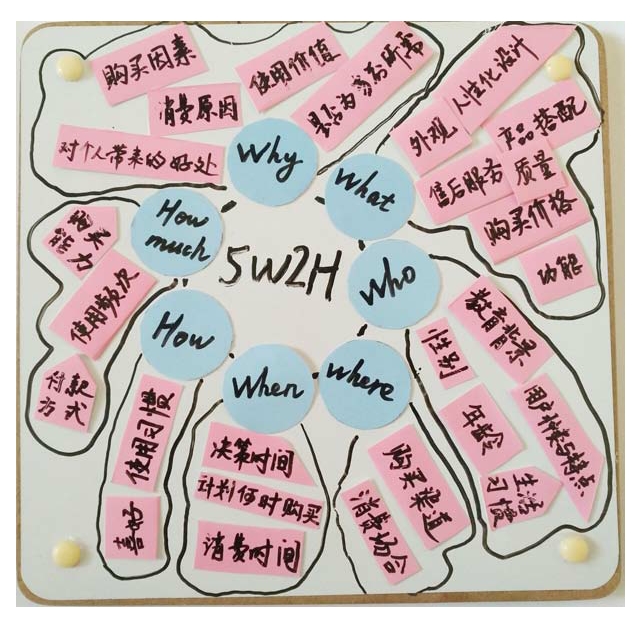 购买因素
消费原因
使用价值
是否为家乐所需
对个人带来的好处
Why
What
外观
人性化设计
产品搭配
售后服务
质量
购买价格
功能
How
much
5W2H
Who
购买
能力
使用频次
付款
方式
How
When
where
教育背景
性别
年龄
生活
习惯
使用习惯
喜好
决策时间
计划何时购买
消费时间
购买渠道
消费场合